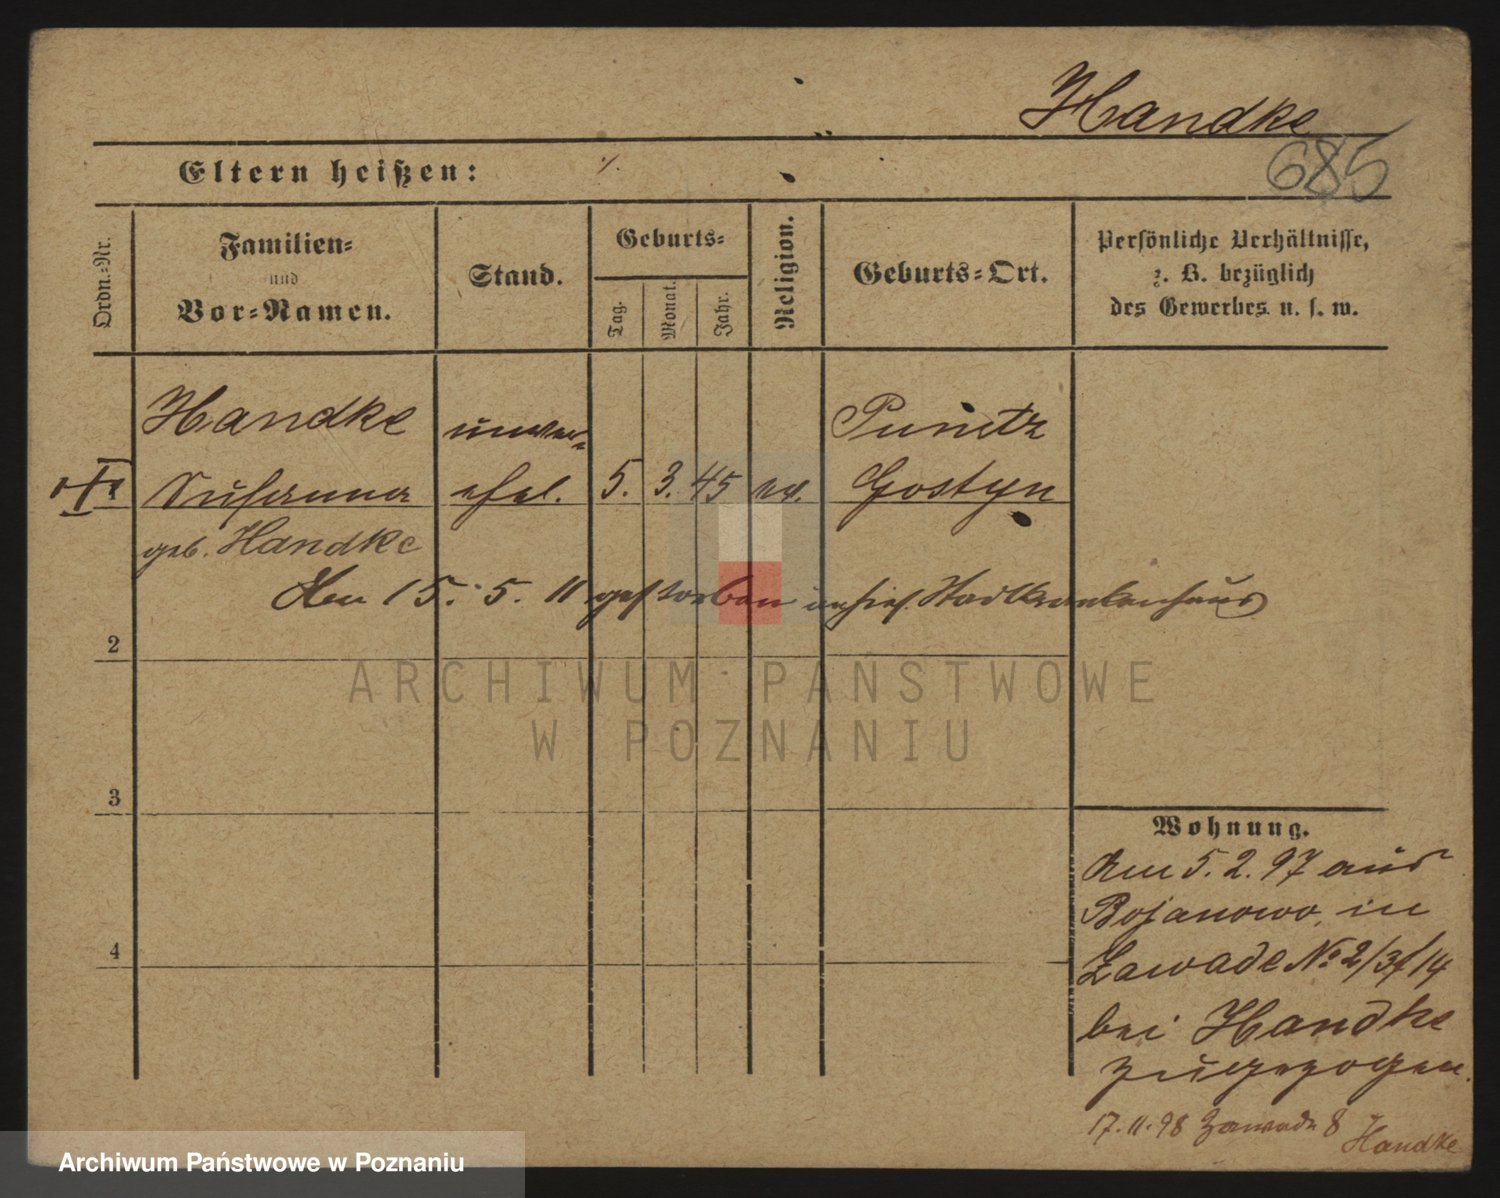 Handke
685
Eltern heißen:
Ordn.-Nr.
Familien-
und
Vor-Namen.
Stand.
Geburts-
Tag.
Monat.
Jahr.
Religion.
Geburts-Ort.
Persönliche Verhältnisse,
z. B. bezüglich
des Gewerbes u. s. w.
Handke unver- Punitz
Susanna ehel. 5. 3. 45 ev. Gostyn
geb. Handke
Den 15. 5. 11 gestorben Stadtkrankenhaus
2
3
4
Wohnung.
Am 5. 2. 97 aus
Bojanowo, in
Zawade No 2/3/14
bei Handke
zugezogen.
17.11.98 Zawade 8
Handke
ARCHIWUM PAŃSTWOWE
W POZNANIU
Archiwum Państwowe w Poznaniu